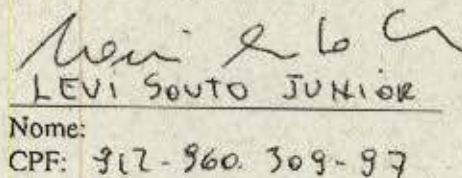 LEVI SOUTO JUNIOR
Nome:
CPF: 912-960.309-97